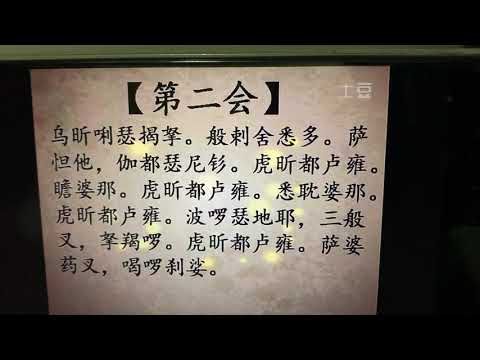 【第二会】
土豆
乌昕唎瑟揭拏。般剌舍悉多。萨
怛他，伽都瑟尼钐。虎昕都卢雍。
瞻婆那。虎昕都卢雍。悉耽婆那。
虎昕都卢雍。波啰瑟地耶，三般
叉，拏羯啰。虎昕都卢雍。萨婆
药叉，喝啰刹娑。